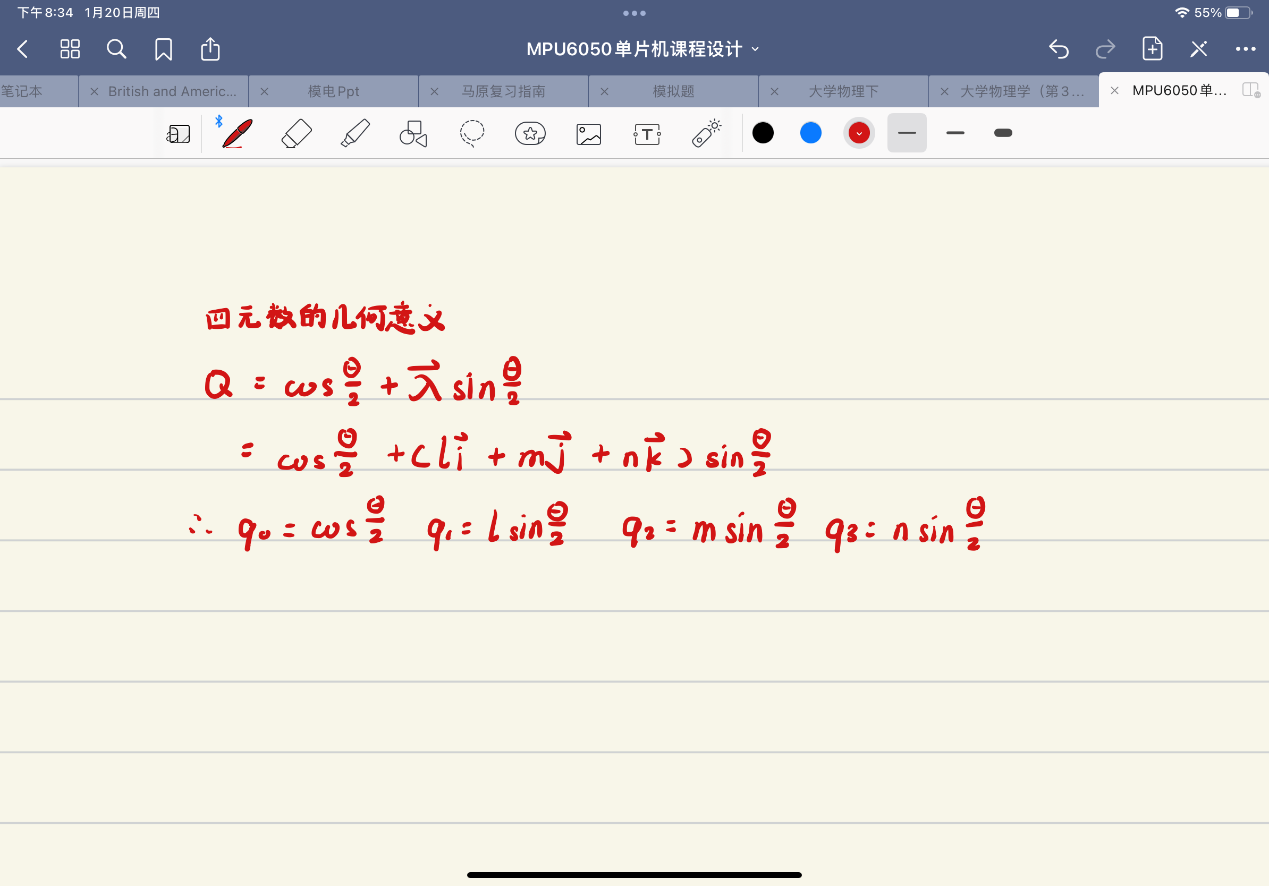 下午8:34 1月20日周四
55%
MPU6050单片机课程设计
笔记本
British and Americ...
模电Ppt
马原复习指南
模拟题
大学物理下
大学物理学（第3...
MPU6050单...
四元数的几何意义
Q = cos θ/2 + λ⃗ sin θ/2
= cos θ/2 + (l i⃗ + m j⃗ + n k⃗) sin θ/2
∴ q₀ = cos θ/2 q₁ = l sin θ/2 q₂ = m sin θ/2 q₃ = n sin θ/2